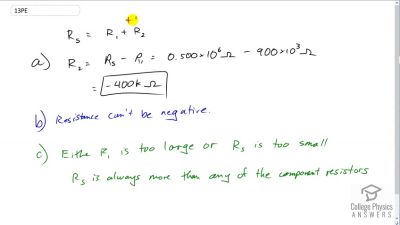 13PE
R_S = R_1 + R_2
a) R_2 = R_S - R_1 = 0.500×10^6 Ω - 900×10^3 Ω
= -400k Ω
b) Resistance can't be negative.
c) Either R_1 is too large or R_S is too small
R_S is always more than any of the component resistors
College Physics
ANSWERS